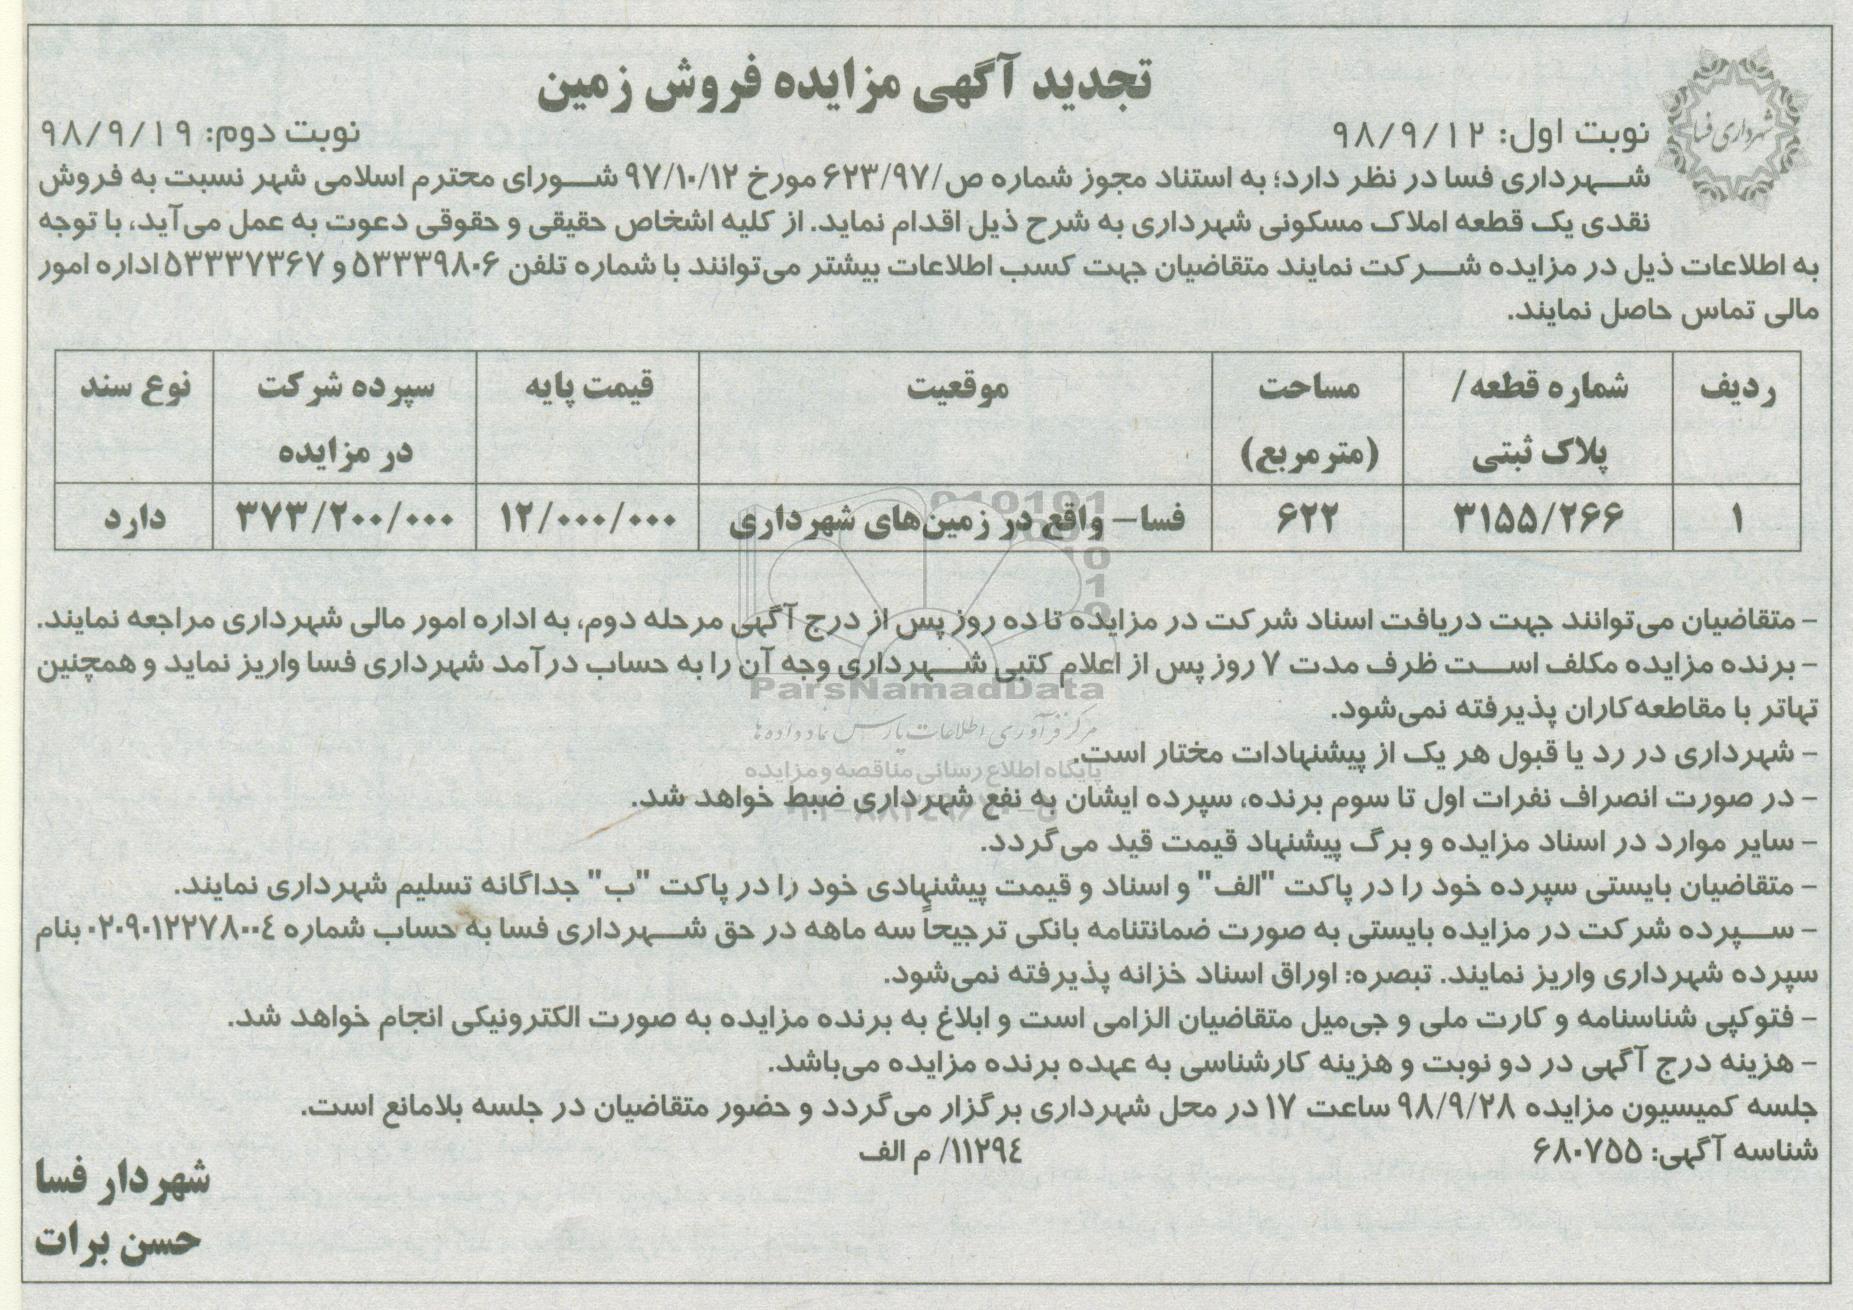 تجدید آگهی مزایده فروش زمین
شهرداری فسا
نوبت اول: ۹۸/۹/۱۲
نوبت دوم: ۹۸/۹/۱۹
شهرداری فسا در نظر دارد؛ به استناد مجوز شماره ص/۶۲۳/۹۷ مورخ ۹۷/۱۰/۱۲ شورای محترم اسلامی شهر نسبت به فروش
نقدی یک قطعه املاک مسکونی شهرداری به شرح ذیل اقدام نماید. از کلیه اشخاص حقیقی و حقوقی دعوت به عمل می‌آید، با توجه
به اطلاعات ذیل در مزایده شرکت نمایند متقاضیان جهت کسب اطلاعات بیشتر می‌توانند با شماره تلفن ۵۳۳۳۹۸۰۶ و ۵۳۳۳۷۳۶۷ اداره امور
مالی تماس حاصل نمایند.
ردیف شماره قطعه/ پلاک ثبتی مساحت (مترمربع) موقعیت قیمت پایه سپرده شرکت در مزایده نوع سند
۱ ۳۱۵۵/۲۶۶ ۶۲۲ فسا- واقع در زمین‌های شهرداری ۱۲/۰۰۰/۰۰۰ ۳۷۳/۲۰۰/۰۰۰ دارد
- متقاضیان می‌توانند جهت دریافت اسناد شرکت در مزایده تا ده روز پس از درج آگهی مرحله دوم، به اداره امور مالی شهرداری مراجعه نمایند.
- برنده مزایده مکلف است ظرف مدت ۷ روز پس از اعلام کتبی شهرداری وجه آن را به حساب درآمد شهرداری فسا واریز نماید و همچنین
تهاتر با مقاطعه‌کاران پذیرفته نمی‌شود.
- شهرداری در رد یا قبول هر یک از پیشنهادات مختار است.
- در صورت انصراف نفرات اول تا سوم برنده، سپرده ایشان به نفع شهرداری ضبط خواهد شد.
- سایر موارد در اسناد مزایده و برگ پیشنهاد قیمت قید می‌گردد.
- متقاضیان بایستی سپرده خود را در پاکت "الف" و اسناد و قیمت پیشنهادی خود را در پاکت "ب" جداگانه تسلیم شهرداری نمایند.
- سپرده شرکت در مزایده بایستی به صورت ضمانتنامه بانکی ترجیحاً سه ماهه در حق شهرداری فسا به حساب شماره ۰۲۰۹۰۱۲۲۷۸۰۰۴ بنام
سپرده شهرداری واریز نمایند. تبصره: اوراق اسناد خزانه پذیرفته نمی‌شود.
- فتوکپی شناسنامه و کارت ملی و جی‌میل متقاضیان الزامی است و ابلاغ به برنده مزایده به صورت الکترونیکی انجام خواهد شد.
- هزینه درج آگهی در دو نوبت و هزینه کارشناسی به عهده برنده مزایده می‌باشد.
جلسه کمیسیون مزایده ۹۸/۹/۲۸ ساعت ۱۷ در محل شهرداری برگزار می‌گردد و حضور متقاضیان در جلسه بلامانع است.
شناسه آگهی: ۶۸۰۷۵۵
۱۱۲۹۴/ م الف
شهردار فسا
حسن برات
ParsNamadData
مرکز فرآوری اطلاعات پارس نماد داده‌ها
پایگاه اطلاع رسانی مناقصه و مزایده